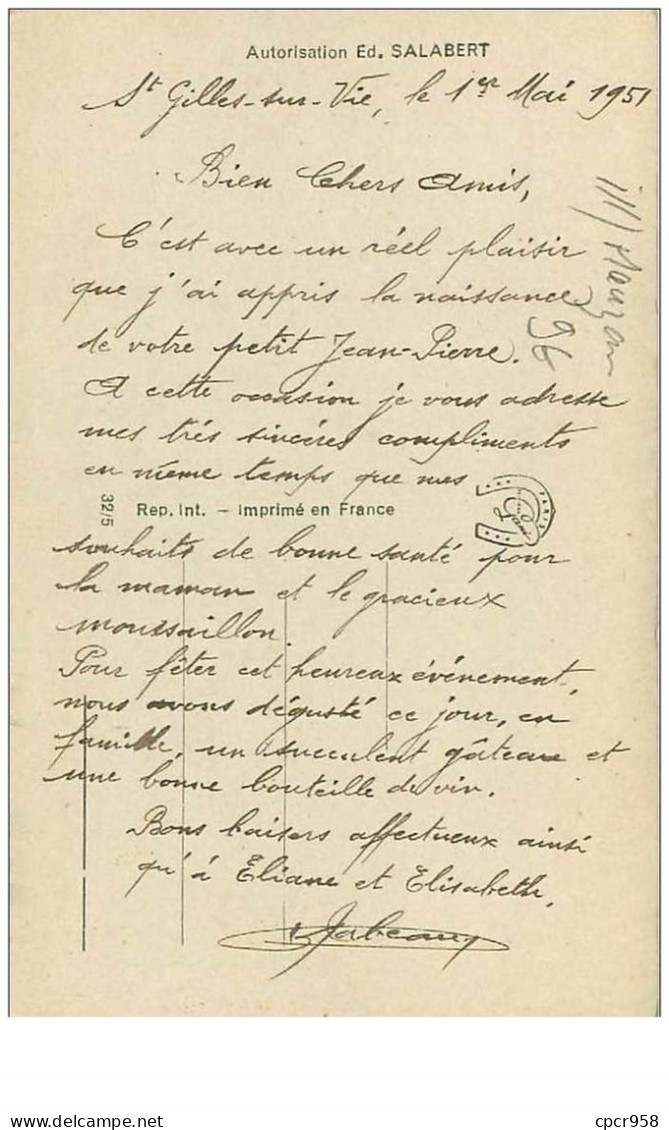 Autorisation Ed. SALABERT
St Gilles-sur-Vie, le 1er Mai 1951
Bien Chers Amis,
C'est avec un réel plaisir
que j'ai appris la naissance
de votre petit Jean-Pierre.
A cette occasion je vous adresse
mes très sincères compliments
en même temps que mes
32/5
Rep. Int. - Imprimé en France
PARIS
souhaits de bonne santé pour
la maman et le gracieux
moussaillon.
Pour fêter cet heureux événement,
nous avons dégusté ce jour, en
famille, un succulent gâteau et
une bonne bouteille de vin.
Bons baisers affectueux ainsi
qu'à Eliane et Elisabeth.
ill/ Mauzan
96
cpcr958